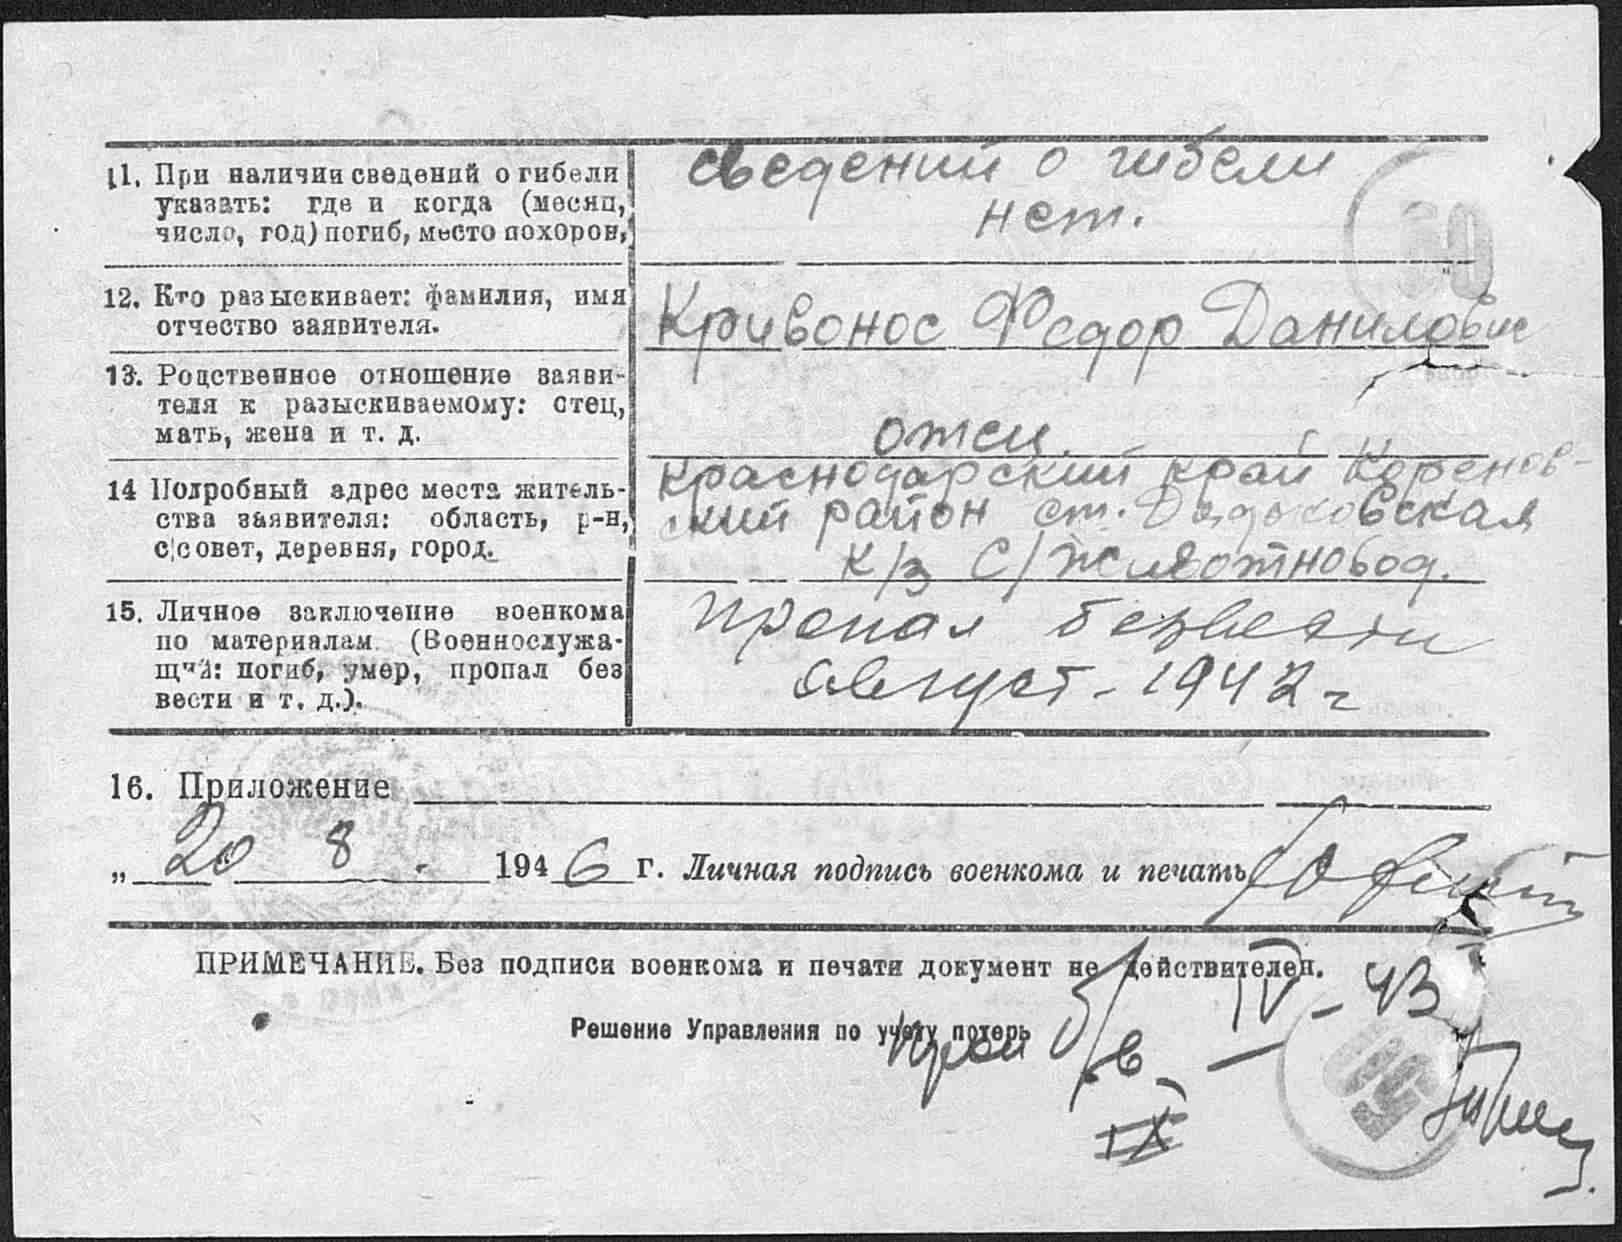 11. При наличии сведений о гибели
указать: где и когда (месяц,
число, год) погиб, место похорон,
сведений о гибели
нет.
12. Кто разыскивает: фамилия, имя
отчество заявителя.
Кривонос Федор Данилович
13. Родственное отношение заяви-
теля к разыскиваемому: отец,
мать, жена и т. д.
отец.
14 Подробный адрес места житель-
ства заявителя: область, р-н,
с|совет, деревня, город.
Краснодарский край Коренов-
ский район ст. Дядьковская
к/з С/Животновод.
15. Личное заключение военкома
по материалам (Военнослужа-
щий: погиб, умер, пропал без
вести и т. д.).
Пропал безвести
август - 1942 г
16. Приложение
„ 20 8 . 1946 г. Личная подпись военкома и печать
ПРИМЕЧАНИЕ. Без подписи военкома и печати документ не действителен.
Решение Управления по учету потерь
проп б/в - IV - 43
IX